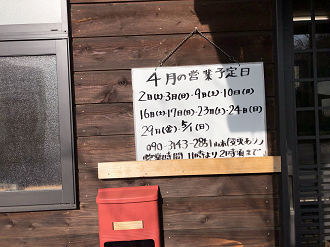 4月の営業予定日
2日(土)3日(日)・9日(土)・10日(日)
16日(土)17日(日)・23日(土)・24日(日)
29日(金)・5/1(日)
090-3143-2851
営業時間 11時より21時頃まで